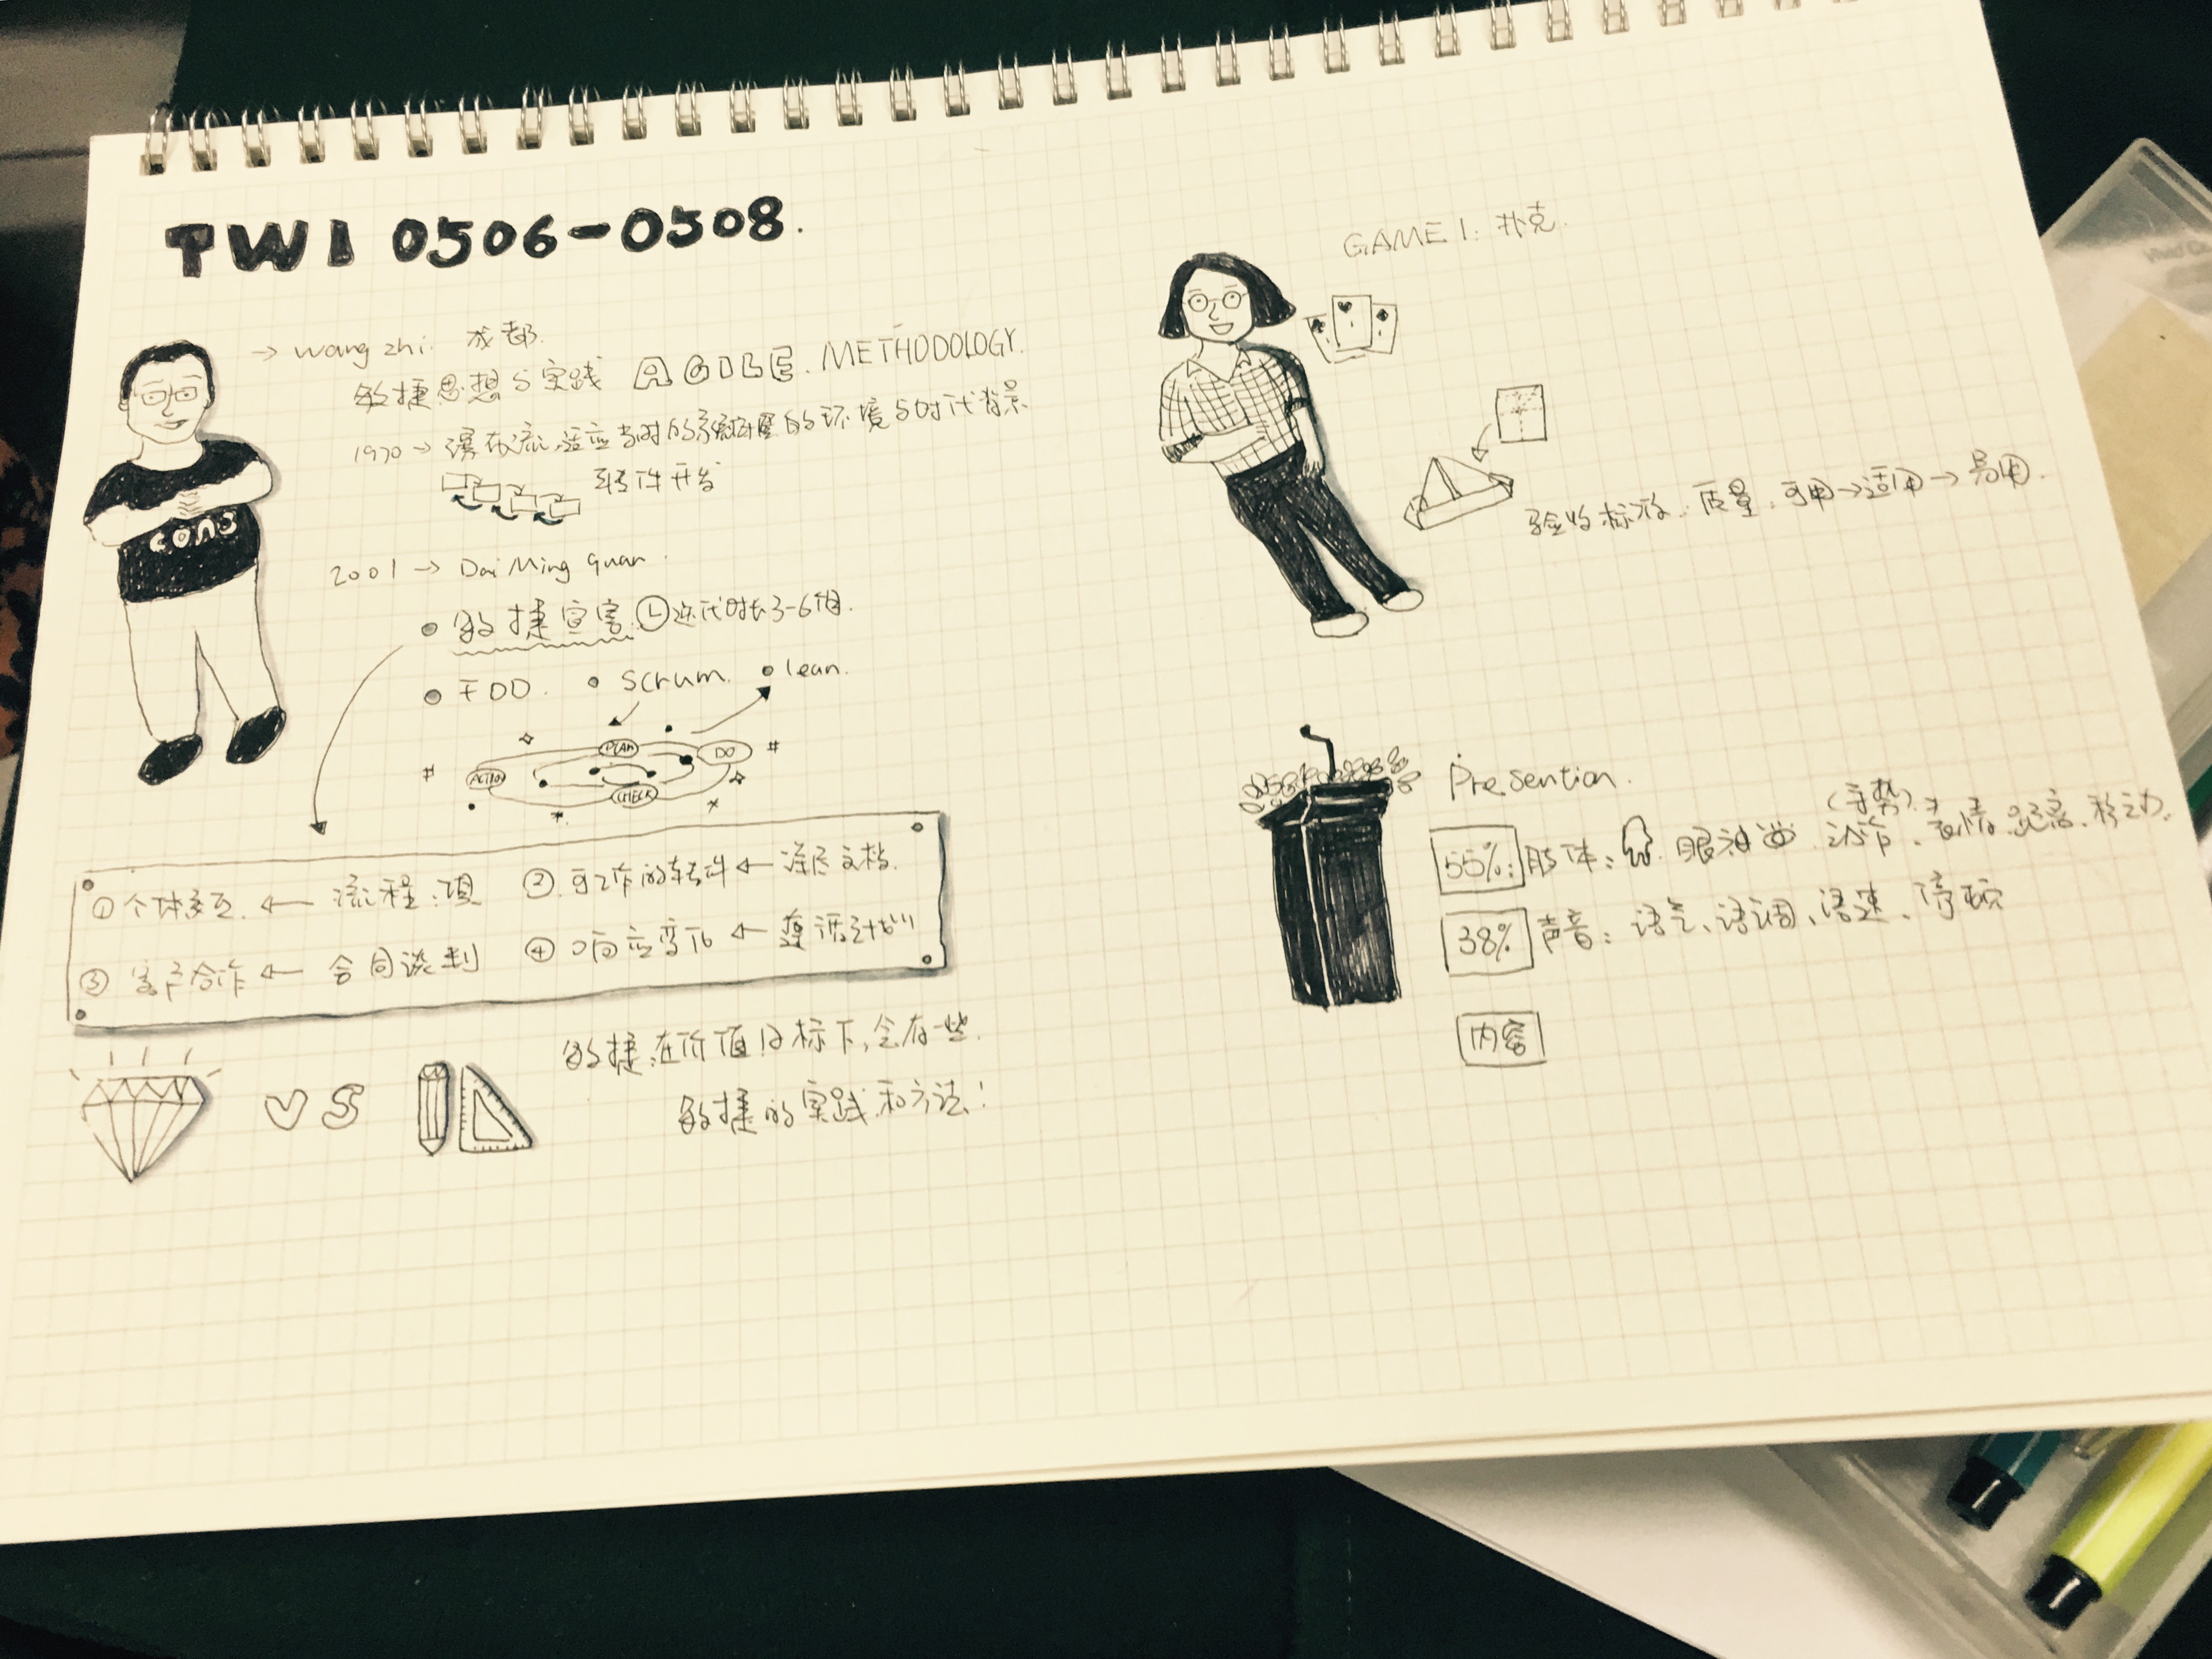 TWI 0506-0508.
→ wang zhi. 成都.
敏捷思想与实践 AGILE. METHODOLOGY.
1970 → 瀑布流,适应当时的 的环境与时代背景
软件开发
cons
2001 → Dai Ming quan.
敏捷宣言 迭代时长3-6
FDD. scrum. lean.
PLAN DO
ACTION CHECK
①个体交互. ← 流程. ②.可工作的软件 ← 文档.
③ 客户合作 ← 合同谈判 ④ 响应变化 ← 遵循计划
VS
敏捷:在价值目标下,会有一些.
敏捷的实践和方法!
GAME 1: 扑克.
验收标准: 质量. 可用→适用→易用.
Presention.
(手势)
55%: 肢体: 眼神 动作、表情、距离、移动.
38% 声音: 语气、语调、语速、停顿
内容